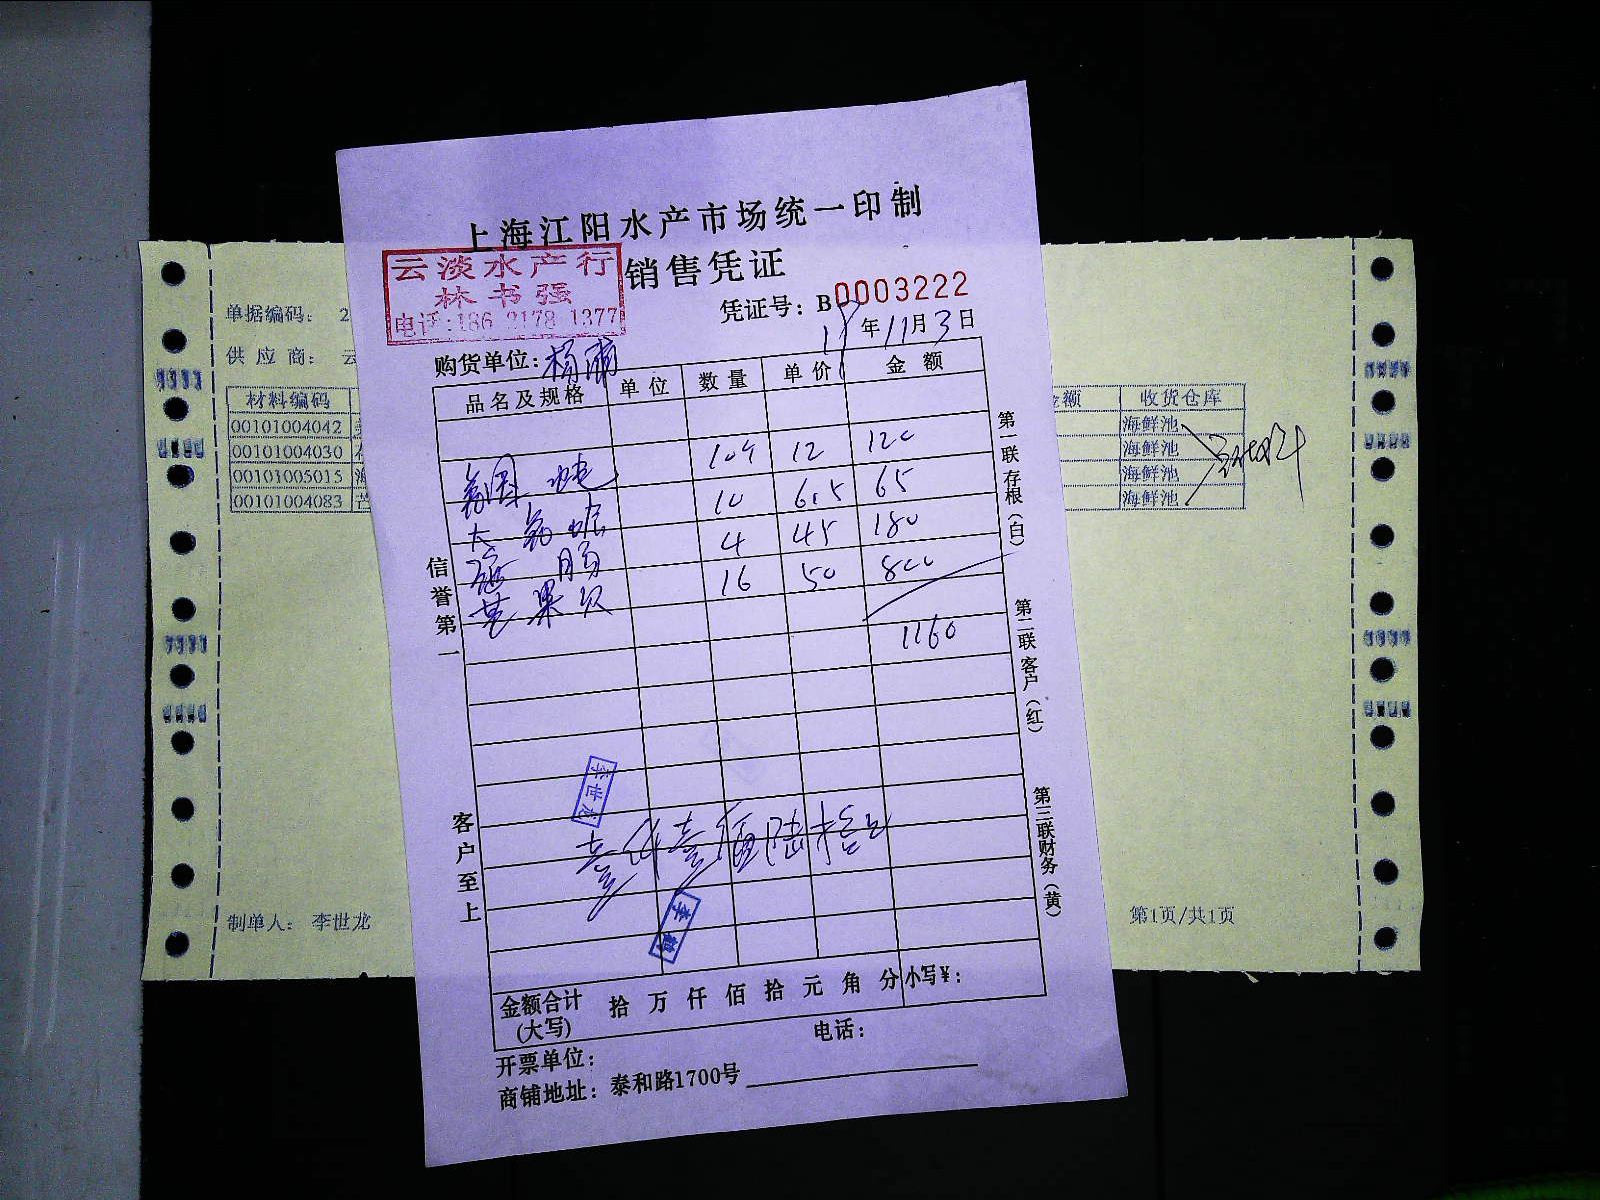 上海江阳水产市场统一印制
销售凭证
云淡水产行
林书强
电话:186 2178 1377
凭证号：B 0003222
19年11月3日
购货单位：杨浦
品名及规格 单位 数量 单价 金额
10斤 12 120
大 10 6.5 65
海肠 4 45 180
芒果贝 16 50 800
1160
李世龙
壹仟壹佰陆拾元
金额合计(大写) 拾 万 仟 佰 拾 元 角 分 小写¥：
开票单位： 电话：
商铺地址：泰和路1700号
信誉第一
客户至上
第一联存根（白）
第二联客户（红）
第三联财务（黄）
单据编码： 2
供应商： 云
材料编码 收货仓库
00101004042 海鲜池
00101004030 海鲜池
00101005015 海鲜池
00101004083 海鲜池
制单人： 李世龙
第1页/共1页